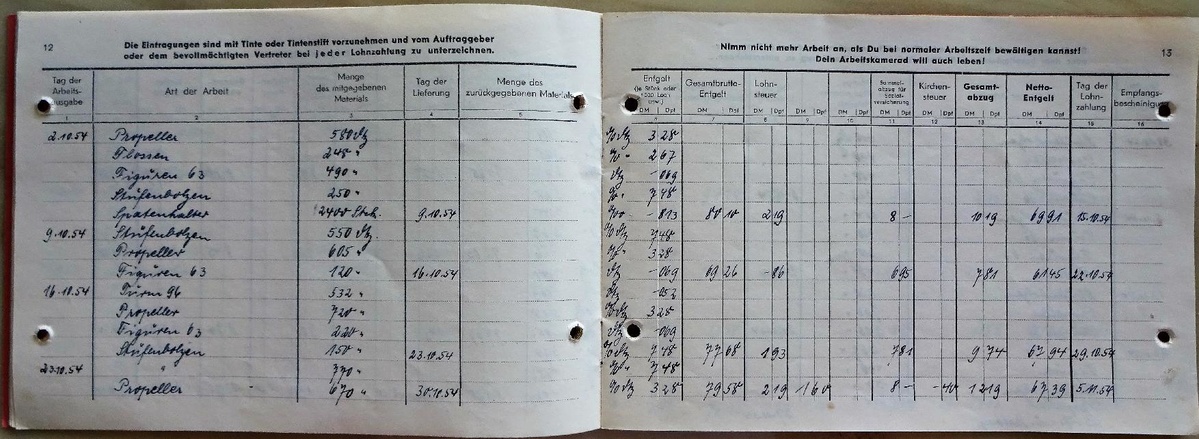 12
Die Eintragungen sind mit Tinte oder Tintenstift vorzunehmen und vom Auftraggeber
oder dem bevollmächtigten Vertreter bei jeder Lohnzahlung zu unterzeichnen.
Tag der Arbeitsausgabe | Art der Arbeit | Menge des mitgegebenen Materials | Tag der Lieferung | Menge des zurückgegebenen Materials
1 2 3 4 5
2.10.54 Propeller 580 Dtz
Flossen 245 "
Figuren 63 490 "
Stufenbolzen 250 "
Spatenhalter 2400 Stck. 9.10.54
9.10.54 Stufenbolzen 550 Dtz.
Propeller 605 "
Figuren 63 120 " 16.10.54
16.10.54 Turm 94 532 "
Propeller 720 "
Figuren 63 220 "
Stufenbolzen 150 " 23.10.54
23.10.54 " 370 "
Propeller 670 " 30.10.54
Nimm nicht mehr Arbeit an, als Du bei normaler Arbeitszeit bewältigen kannst!
Dein Arbeitskamerad will auch leben!
13
Entgelt (je Stück oder 1000 usw.) | Gesamtbrutto-Entgelt | Lohnsteuer | Sammelabzug für Sozialversicherung | Kirchensteuer | Gesamtabzug | Netto-Entgelt | Tag der Lohnzahlung | Empfangsbescheinigung
DM Dpf DM Dpf DM Dpf DM Dpf DM Dpf DM Dpf DM Dpf DM Dpf DM Dpf
6 7 8 9 10 11 12 13 14 15 16
3 28
2 67
-069
7 48
-813 80 10 2 19 8 - 10 19 69 91 15.10.54
7 48
3 28
-069 69 26 -86 6 95 7 81 61 45 22.10.54
-052
3 28
-069
7 48 77 68 1 93 7 81 9 74 67 94 29.10.54
7 48
3 28 79 58 2 19 1 60 8 - -40 12 19 67 39 5.11.54